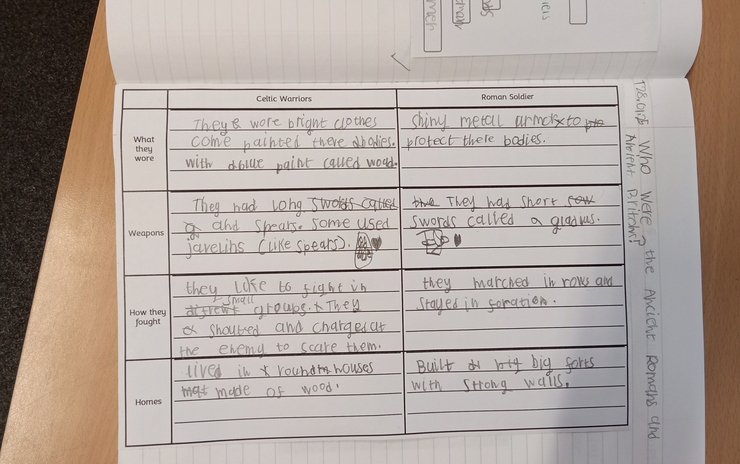 T28.01.25 Who were the Ancient Romans and
Ancient Britons?
Celtic Warriors
Roman Soldier
What
they
wore
They wore bright clothes
come painted there bodies.
with blue paint called woad.
Shiny metal armor to
protect there bodies.
Weapons
They had long swords called
and spears. Some used
javelins (like spears).
the They had short
swords called a gladius.
How they
fought
they like to fight in
small
difrent groups. They
shouted and charged at
the enemy to scare them.
they marched in rows and
stayed in foration.
Homes
lived in round houses
made of wood.
Built big big forts
with strong walls.